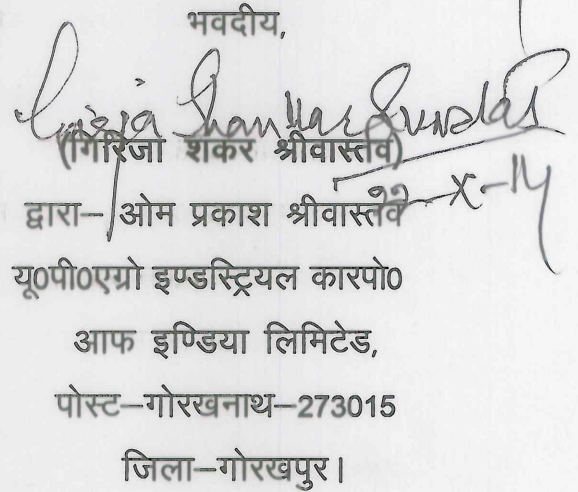 भवदीय,
Girija Shankar Srivastav
(गिरिजा शंकर श्रीवास्तव)
22-X-14
द्वारा– ओम प्रकाश श्रीवास्तव
यू0पी0एग्रो इण्डस्ट्रियल कारपो0
आफ इण्डिया लिमिटेड,
पोस्ट–गोरखनाथ–273015
जिला–गोरखपुर।